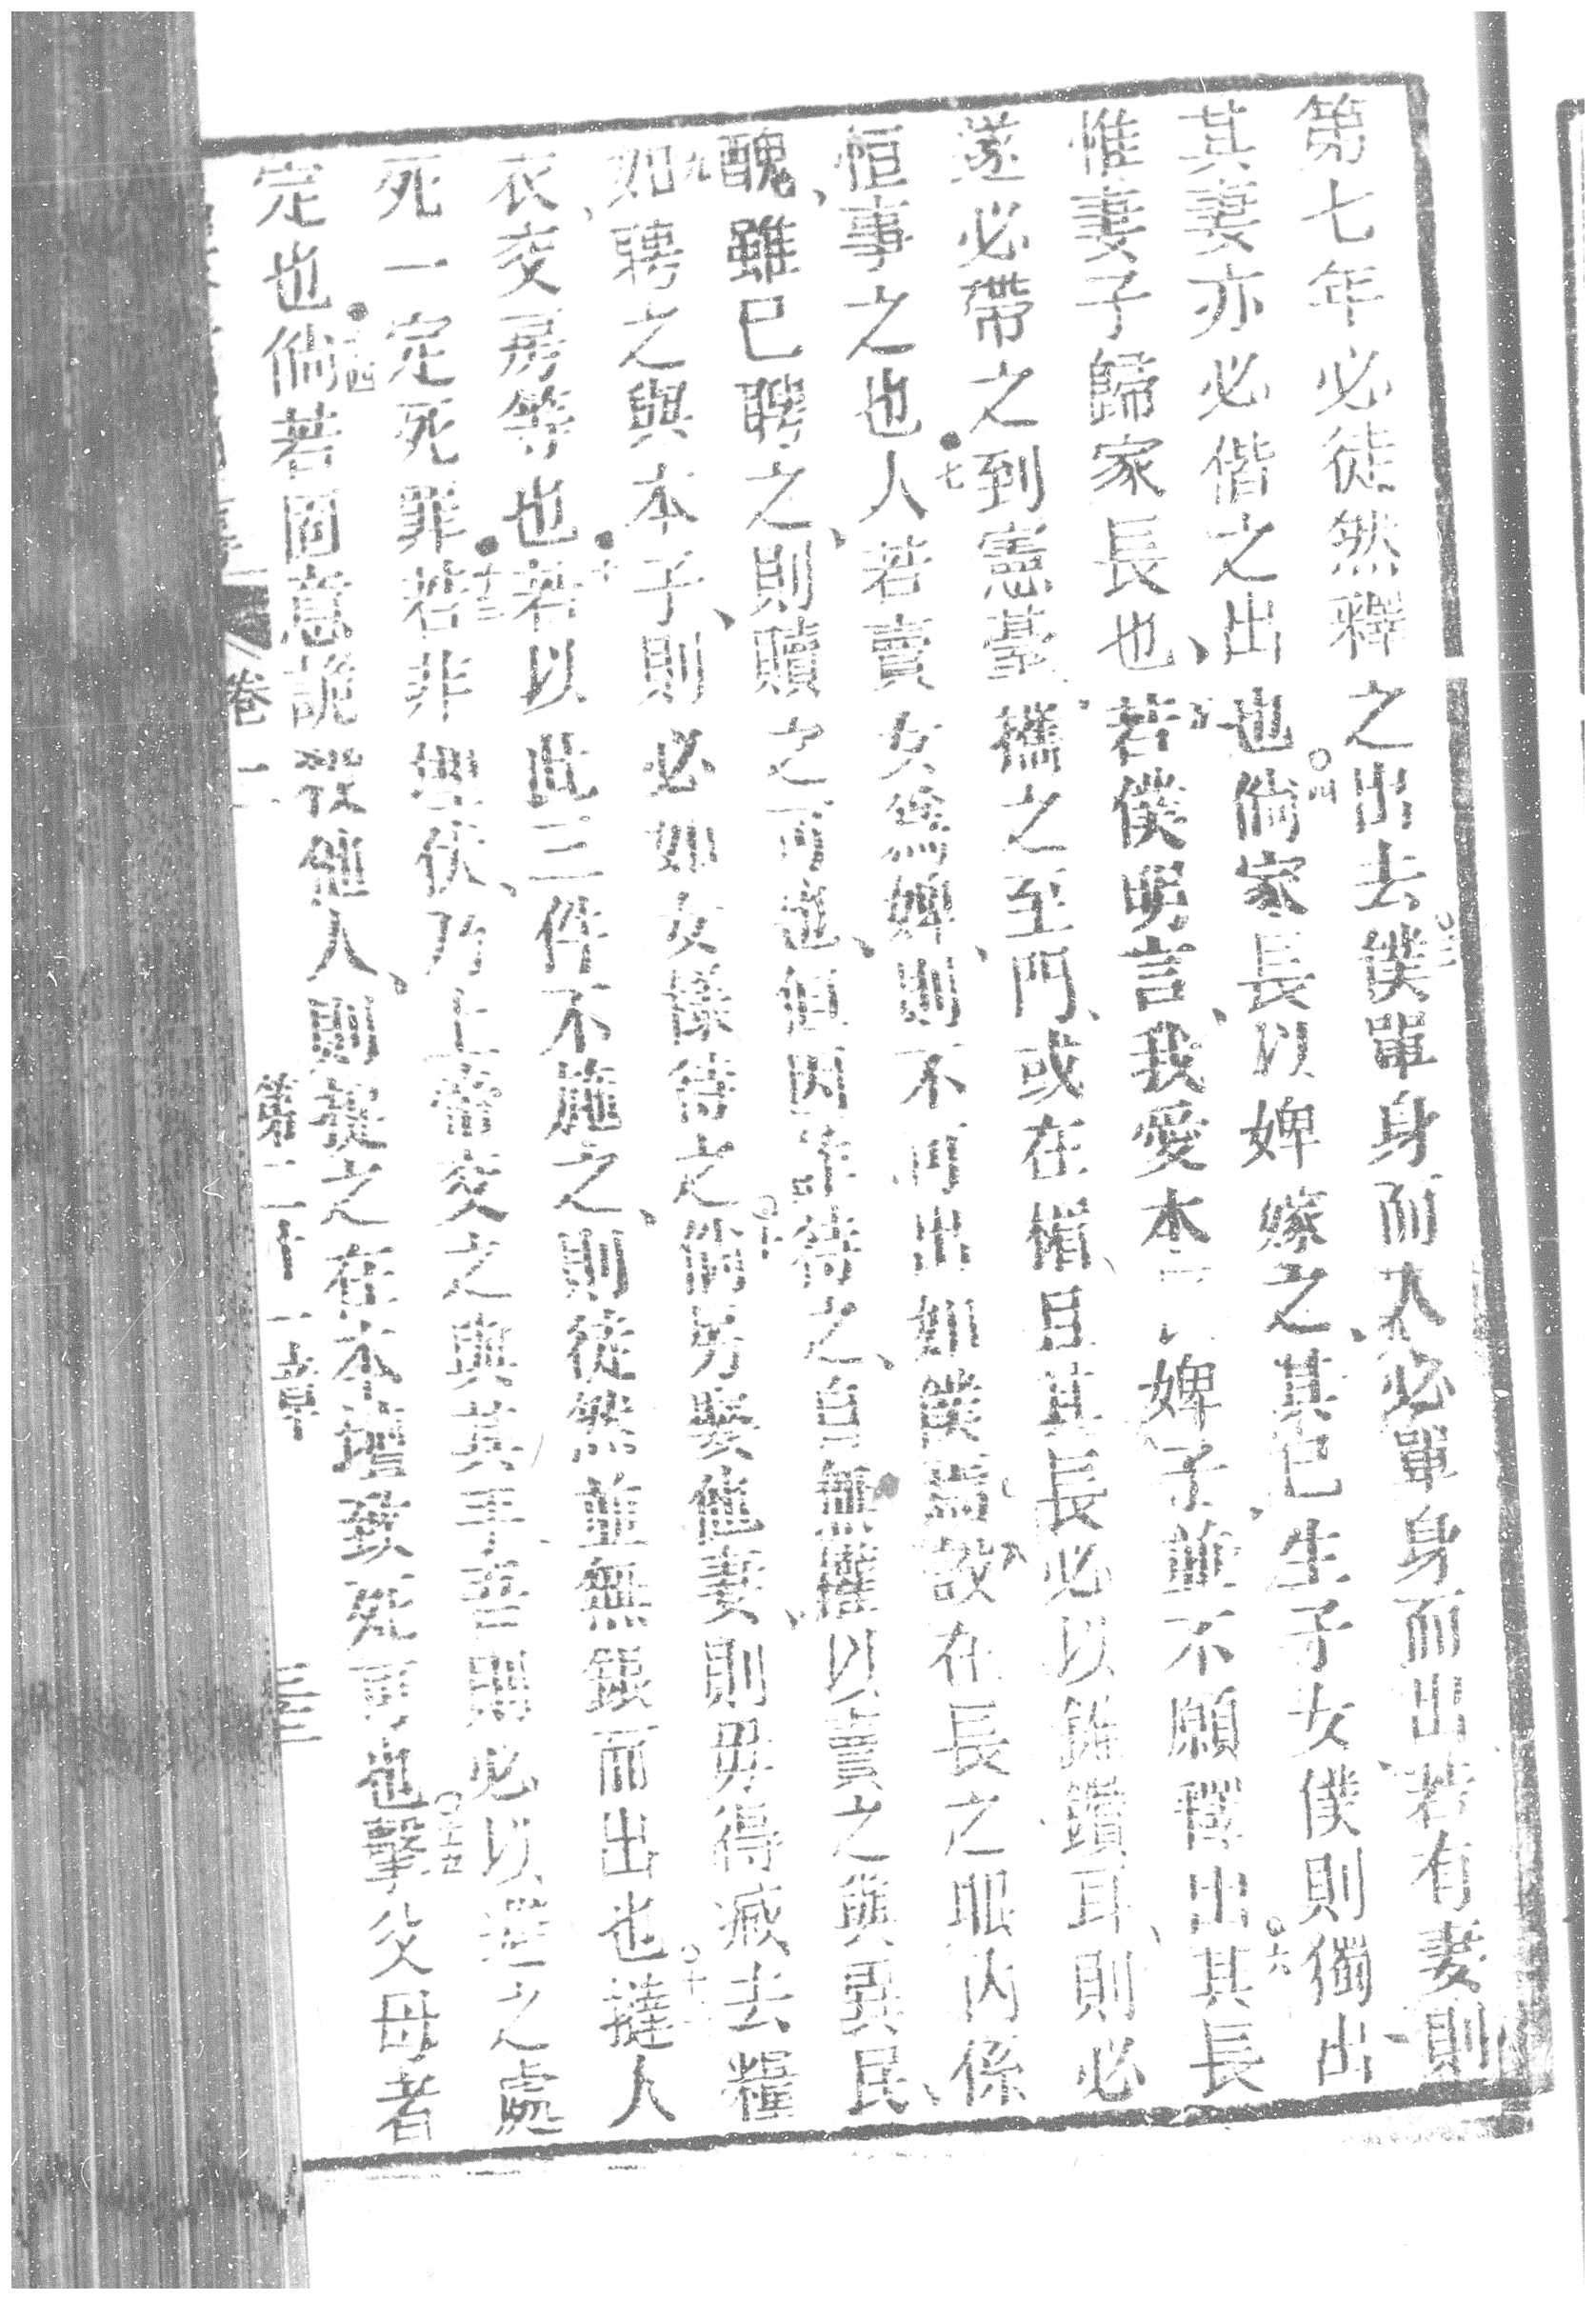 第七年必徒然釋之出去○三僕單身而入必單身而出、若有妻則
其妻亦必偕之出也○四倘家長以婢嫁之、其已生子女僕則獨出、
惟妻子歸家長也、○五若僕明言、我愛本 婢子並不願釋出○六其長
遂必帶之到憲臺、攜之至門、或在楣、且其長必以錐鑽耳、則必
恒事之也●七人若賣女為婢、則不可出如僕焉○八設在長之眼內係
醜、雖已聘之、則贖之可也、但因詐待之、自無權以賣之與異民、
九如聘之與本子、則必如女儀待之○十倘另娶他妻、則毋得減去糧
衣、交房等也●十一若以此三件不施之、則徒然並無銀而出也○十二撻人
死一定死罪●十三若非埋伏、乃上帝交之與其手、吾則必以逃之處
定也●十四倘若固意詭殺他人、則提之在本壇致死可也○十五擊父母者
卷二 第二十一章 三三